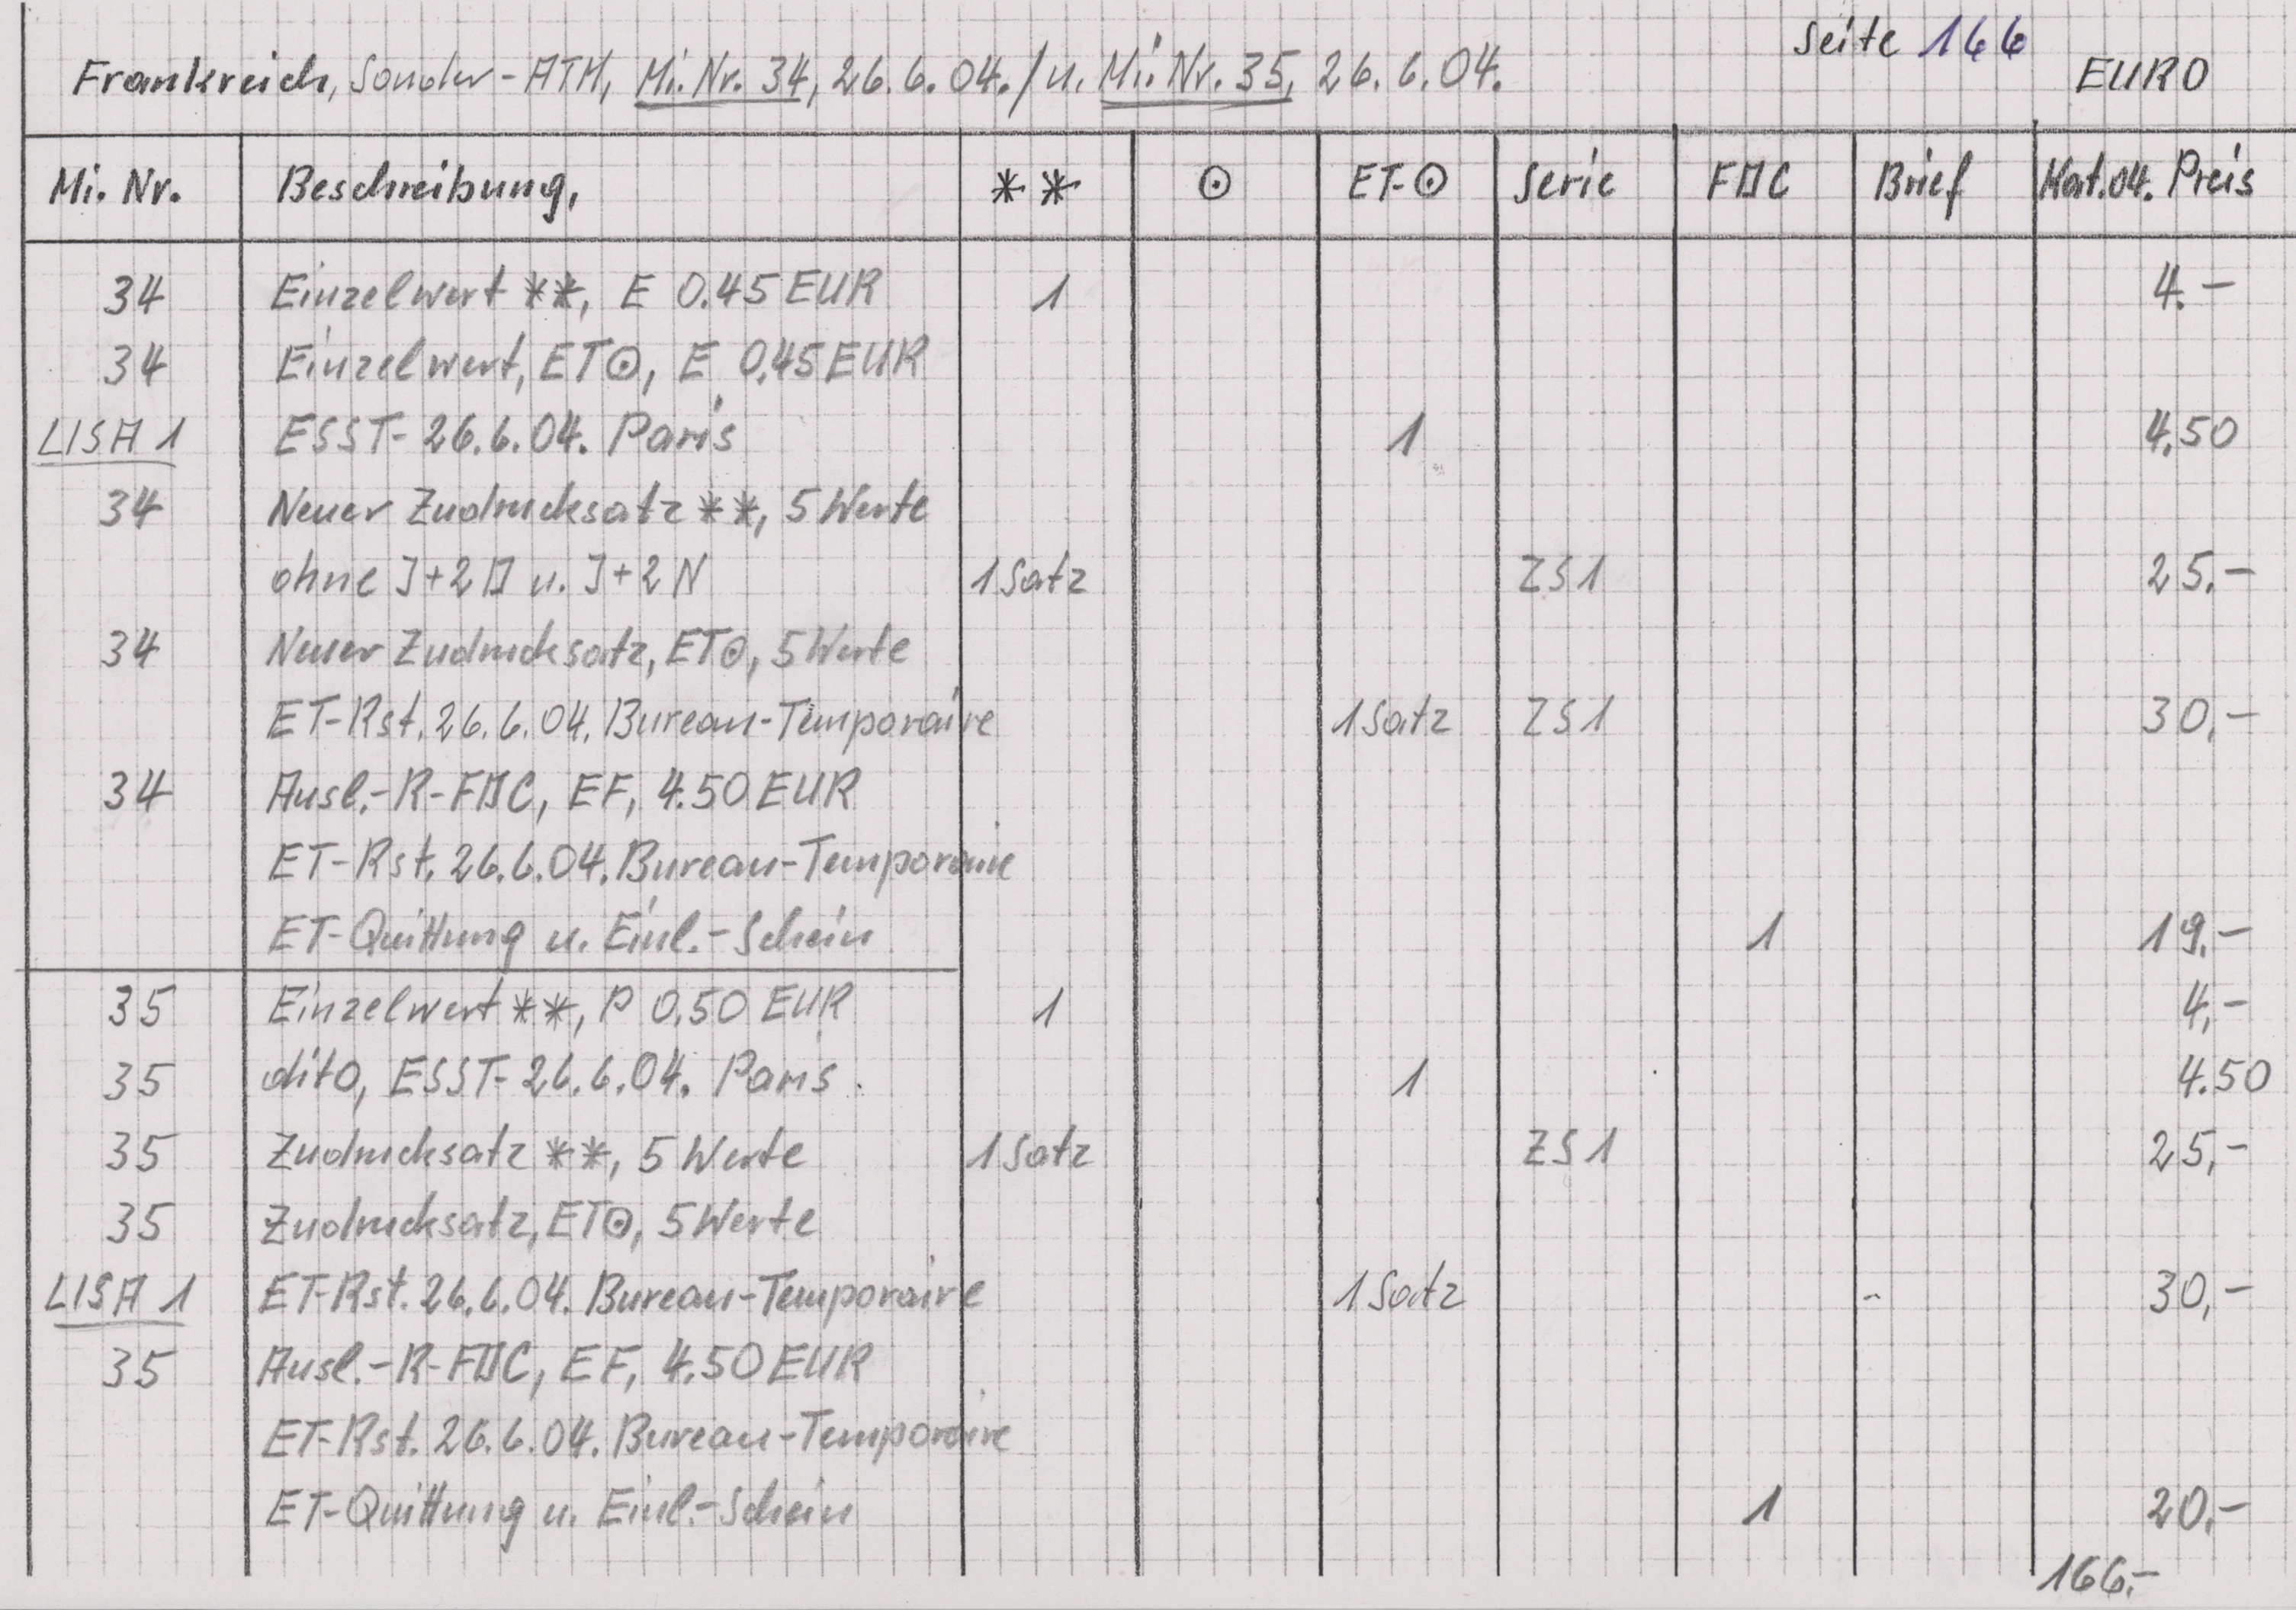 Seite 166
Frankreich, Sonder-ATM, Mi. Nr. 34, 26.6.04./u. Mi. Nr. 35, 26.6.04. EURO
Mi. Nr. Beschreibung, ** ⊙ ET-⊙ Serie FDC Brief Kat.04. Preis
34 Einzelwert **, E 0.45 EUR 1 4.-
34 Einzelwert, ET⊙, E 0,45 EUR
LISA 1 ESST- 26.6.04. Paris 1 4,50
34 Neuer Zudrucksatz **, 5 Werte
ohne J+2D u. J+2N 1 Satz ZS1 25.-
34 Neuer Zudrucksatz, ET⊙, 5 Werte
ET-Rst. 26.6.04. Bureau-Temporaire 1 Satz ZS1 30,-
34 Ausl.-R-FDC, EF, 4.50 EUR
ET-Rst. 26.6.04. Bureau-Temporaire
ET-Quittung u. Einl.-Schein 1 19.-
35 Einzelwert **, P 0,50 EUR 1 4,-
35 dito, ESST- 26.6.04. Paris 1 4.50
35 Zudrucksatz **, 5 Werte 1 Satz ZS1 25,-
35 Zudrucksatz, ET⊙, 5 Werte
LISA 1 ET-Rst. 26.6.04. Bureau-Temporaire 1 Satz 30,-
35 Ausl.-R-FDC, EF, 4.50 EUR
ET-Rst. 26.6.04. Bureau-Temporaire
ET-Quittung u. Einl.-Schein 1 20,-
166.-